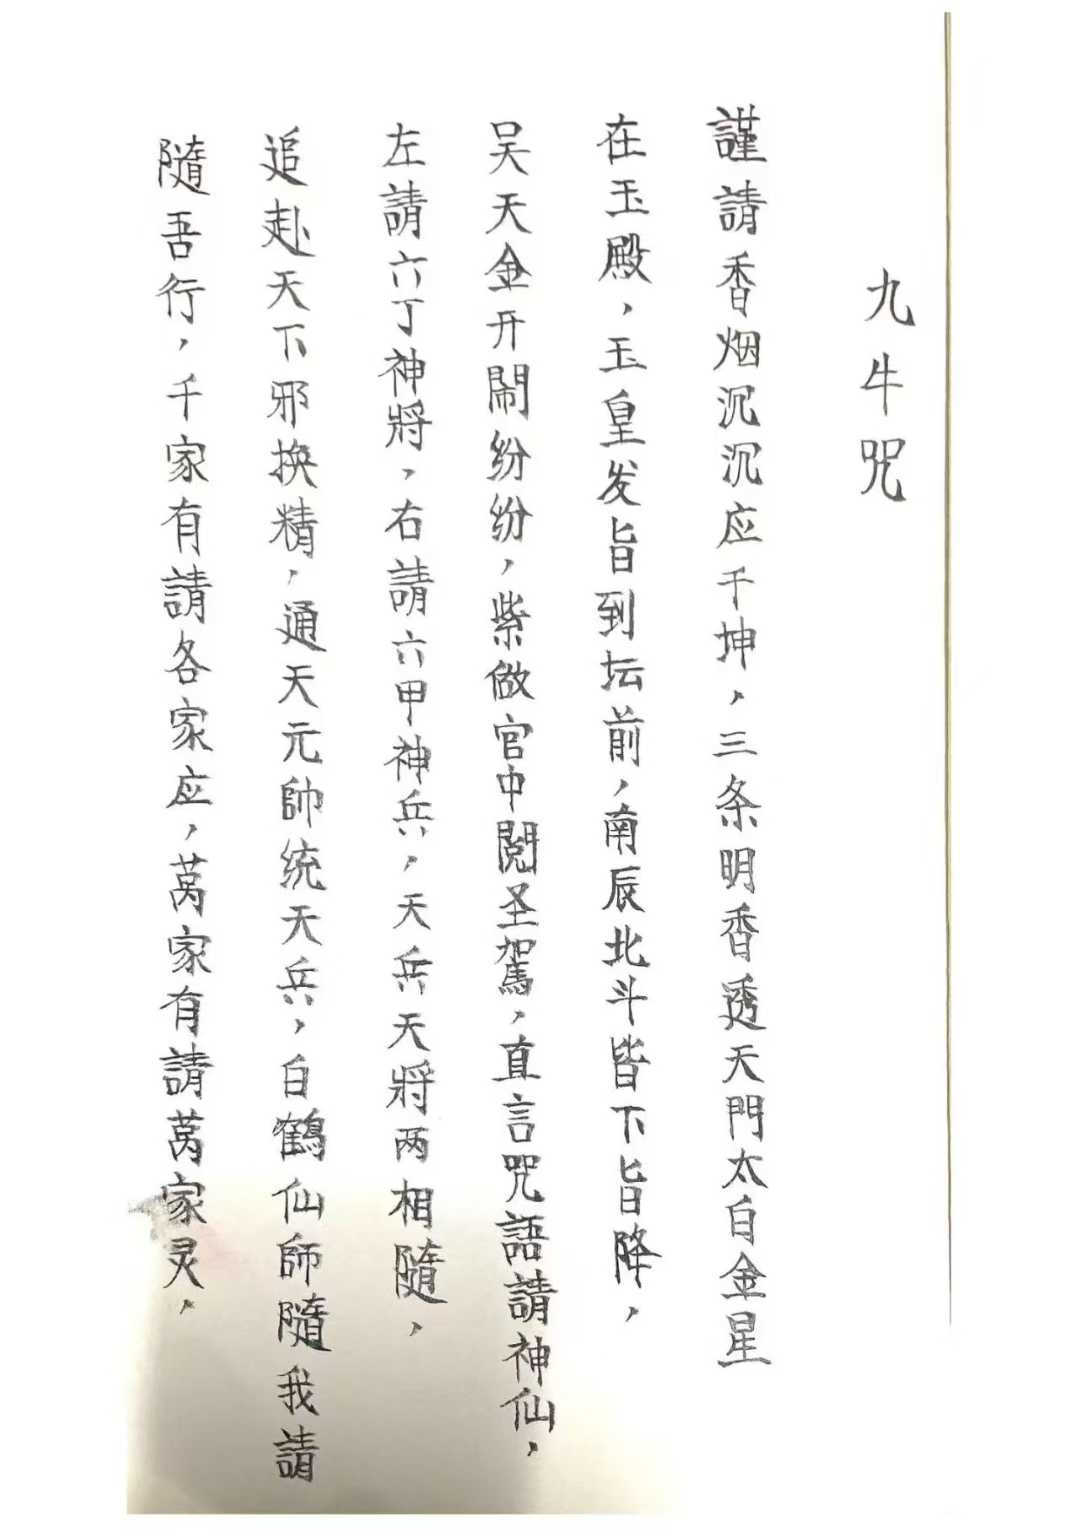 九牛咒
謹請香烟沉沉应干坤，三条明香透天門太白金星
在玉殿，玉皇发旨到坛前，南辰北斗皆下旨降，
吴天金开鬧纷纷，紫做官中閱圣駕，直言咒語請神仙，
左請六丁神將，右請六甲神兵，天兵天將两相隨，
追赴天下邪换精，通天元帥统天兵，白鶴仙師隨我請
隨吾行，千家有請各家应，萬家有請萬家灵，